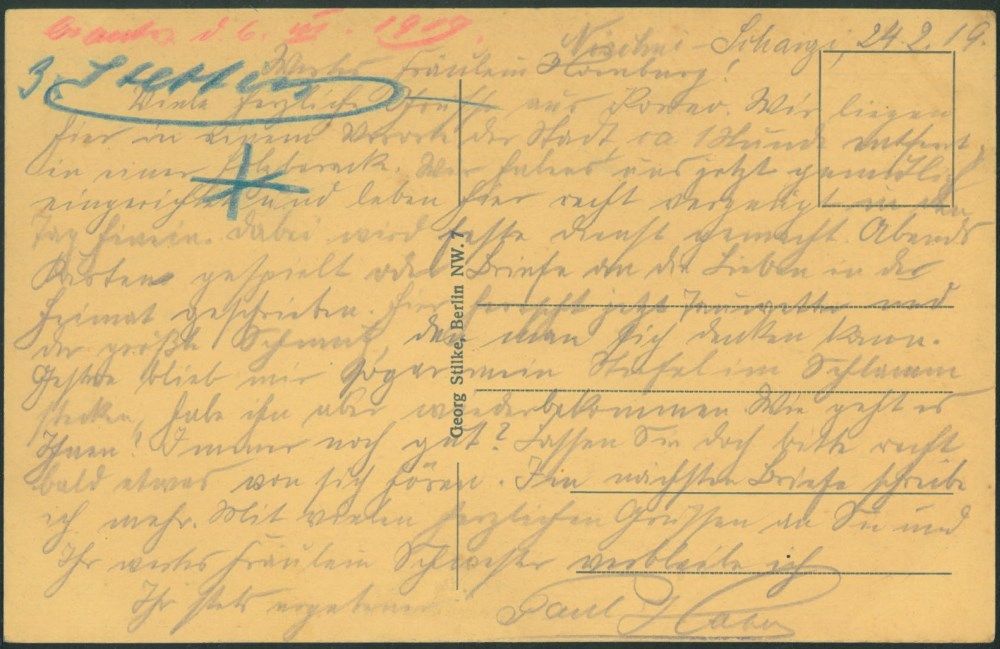 d. 6. III. 1919.
Nischni-Schanzi, 24.2.19.
3. Stetten
Wertes Fräulein Homburg!
Viele herzliche Grüße aus Kowno. Wir liegen
hier in einem Vororte der Stadt, ca 1 Stunde entfernt,
in einer Wir haben's uns jetzt gemütlich
eingerichtet und leben hier recht vergnügt in den
Tag hinein. Dabei wird feste Dienst gemacht. Abends
Karten gespielt oder Briefe an die Lieben in der
Heimat geschrieben. Hier herrscht jetzt Tauwetter und
der größte Schmutz, den man sich denken kann.
Gestern blieb mir sogar mein Stiefel im Schlamm
stecken, habe ihn aber wiederbekommen. Wie geht es
Ihnen? Immer noch gut? Lassen Sie doch bitte recht
bald etwas von sich hören. Im nächsten Briefe schreibe
ich mehr. Mit vielen herzlichen Grüssen an Sie und
Ihr wertes Fräulein Schwester verbleibe ich
Ihr stets ergebener
Paul
Georg Stilke, Berlin NW. 7